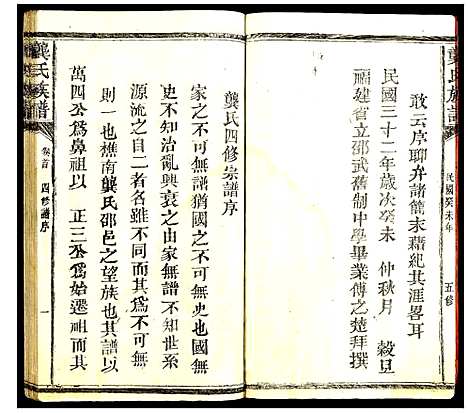 龔氏族譜
民國癸未年
五修
敢云序聊弁諸簡末藉紀其涯畧耳
民國三十二年歲次癸未 仲秋月 穀旦
福建省立邵武舊制中學畢業傅之楚拜撰
龔氏四修宗譜序
家之不可無譜猶國之不可無史也國無
史不知治亂興衰之由家無譜不知世系
源流之自二者名雖不同而其為不可無
則一也樵南龔氏邵邑之望族也其譜以
萬四公為鼻祖以 正三公為始遷祖而其
龔氏族譜
卷首
四修譜序
一